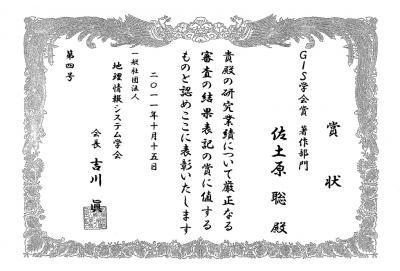 賞状
GIS学会賞 著作部門
佐土原 聡 殿
貴殿の研究業績について厳正なる
審査の結果表記の賞に値する
ものと認めここに表彰いたします
二〇一一年十月十五日
一般社団法人
地理情報システム学会
会長 吉川 眞
第四号